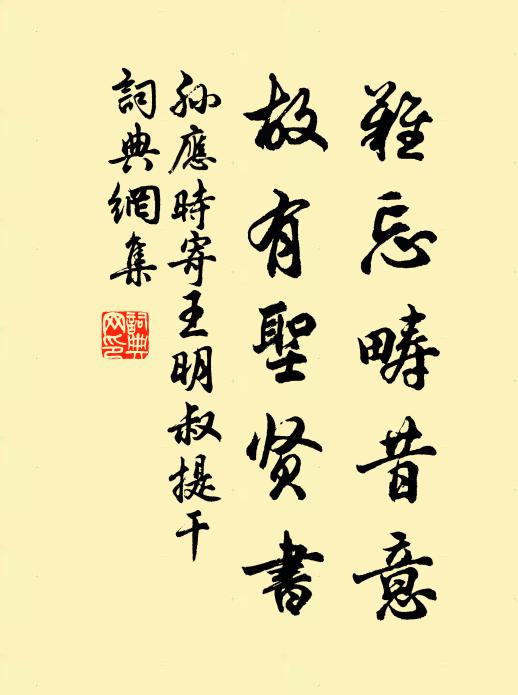 難忘疇昔意
故有聖贤書
孙應時寄王明叔提干
詞典網集
詞典網印